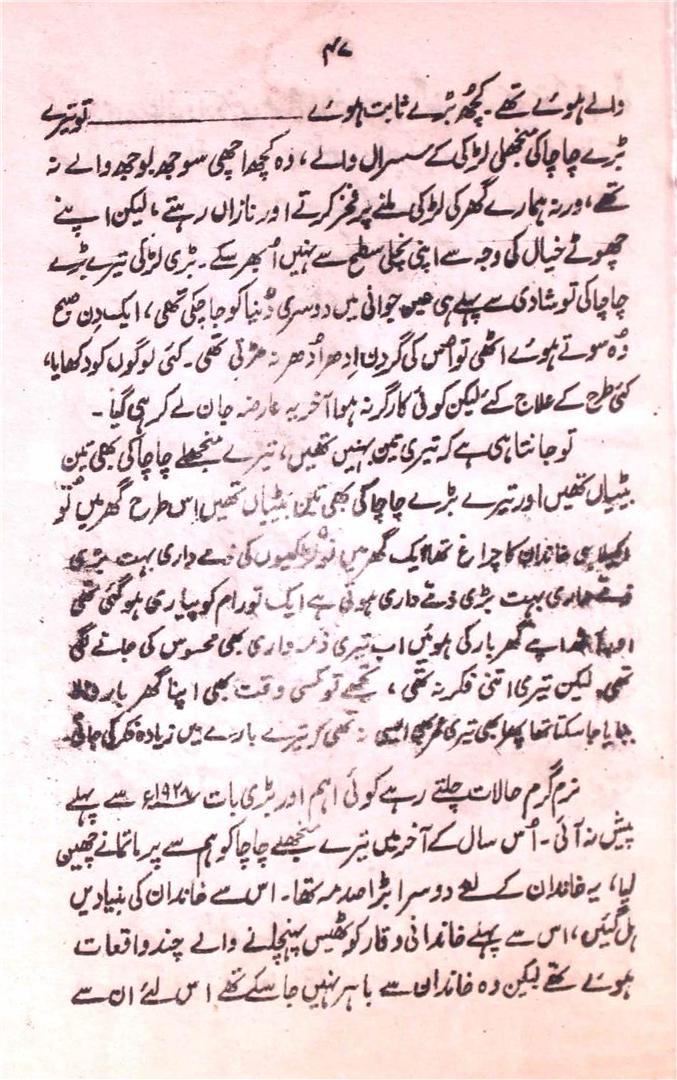 ۴۷
والے ہوئے تھے۔ کچھ بڑے ثابت ہوئے ــــــــــــــــــــــــ تو تیرے
بڑے چاچا کی منجھلی لڑکی کے سسرال والے، وہ کچھ اچھی سوجھ بوجھ والے نہ
تھے، ورنہ ہمارے گھر کی لڑکی ملنے پر فخر کرتے اور نازاں رہتے، لیکن اپنے
چھوٹے خیال کی وجہ سے اپنی نچلی سطح سے نہیں اُبھر سکے۔ بڑی لڑکی تیرے بڑے
چاچا کی تو شادی سے پہلے ہی عین جوانی میں دوسری دُنیا کو جا چکی تھی، ایک دن صبح
وُہ سوتے ہوئے اٹھی تو اُس کی گردن اِدھر اُدھر نہ مڑتی تھی۔ کئی لوگوں کو دکھایا،
کئی طرح کے علاج کئے لیکن کوئی کارگر نہ ہوا آخر یہ عارضہ جان لے کر ہی گیا۔
تو جانتا ہی ہے کہ تیری تین بہنیں تھیں، تیرے منجھلے چاچا کی بھی تین
بیٹیاں تھیں اور تیرے بڑے چاچا کی بھی تین بیٹیاں تھیں اِس طرح گھر میں تُو
اکیلا ہی خاندان کا چراغ تھا ایک گھر میں نو لڑکیوں کی ذمے داری بہت بڑی
ذمے داری بہت بڑی ذمے داری ہوتی ہے ایک تو رام کو پیاری ہو گئی تھی
اپنے گھر بار کی ہوئیں اب تیری ذمہ داری بھی محسوس کی جانے لگی
تھی لیکن تیری اتنی فکر نہ تھی، تجھے تو کسی وقت بھی اپنا گھر بار والا
بنایا جا سکتا تھا پھر ابھی تیری عمر بھی ایسی نہ تھی کہ تیرے بارے میں زیادہ فکر کی جاتی۔
نرم گرم حالات چلتے رہے کوئی اہم اور بڑی بات ۱۹۲۸ء سے پہلے
پیش نہ آئی۔ اُس سال کے آخر میں تیرے منجھلے چاچا کو ہم سے پرماتما نے چھین
لیا، یہ خاندان کے لئے دوسرا بڑا صدمہ تھا۔ اس سے خاندان کی بنیادیں
ہل گئیں، اس سے پہلے خاندانی وقار کو ٹھیس پہنچانے والے چند واقعات
ہوئے تھے لیکن وہ خاندان سے باہر نہیں جا سکے تھے اس لئے ان سے